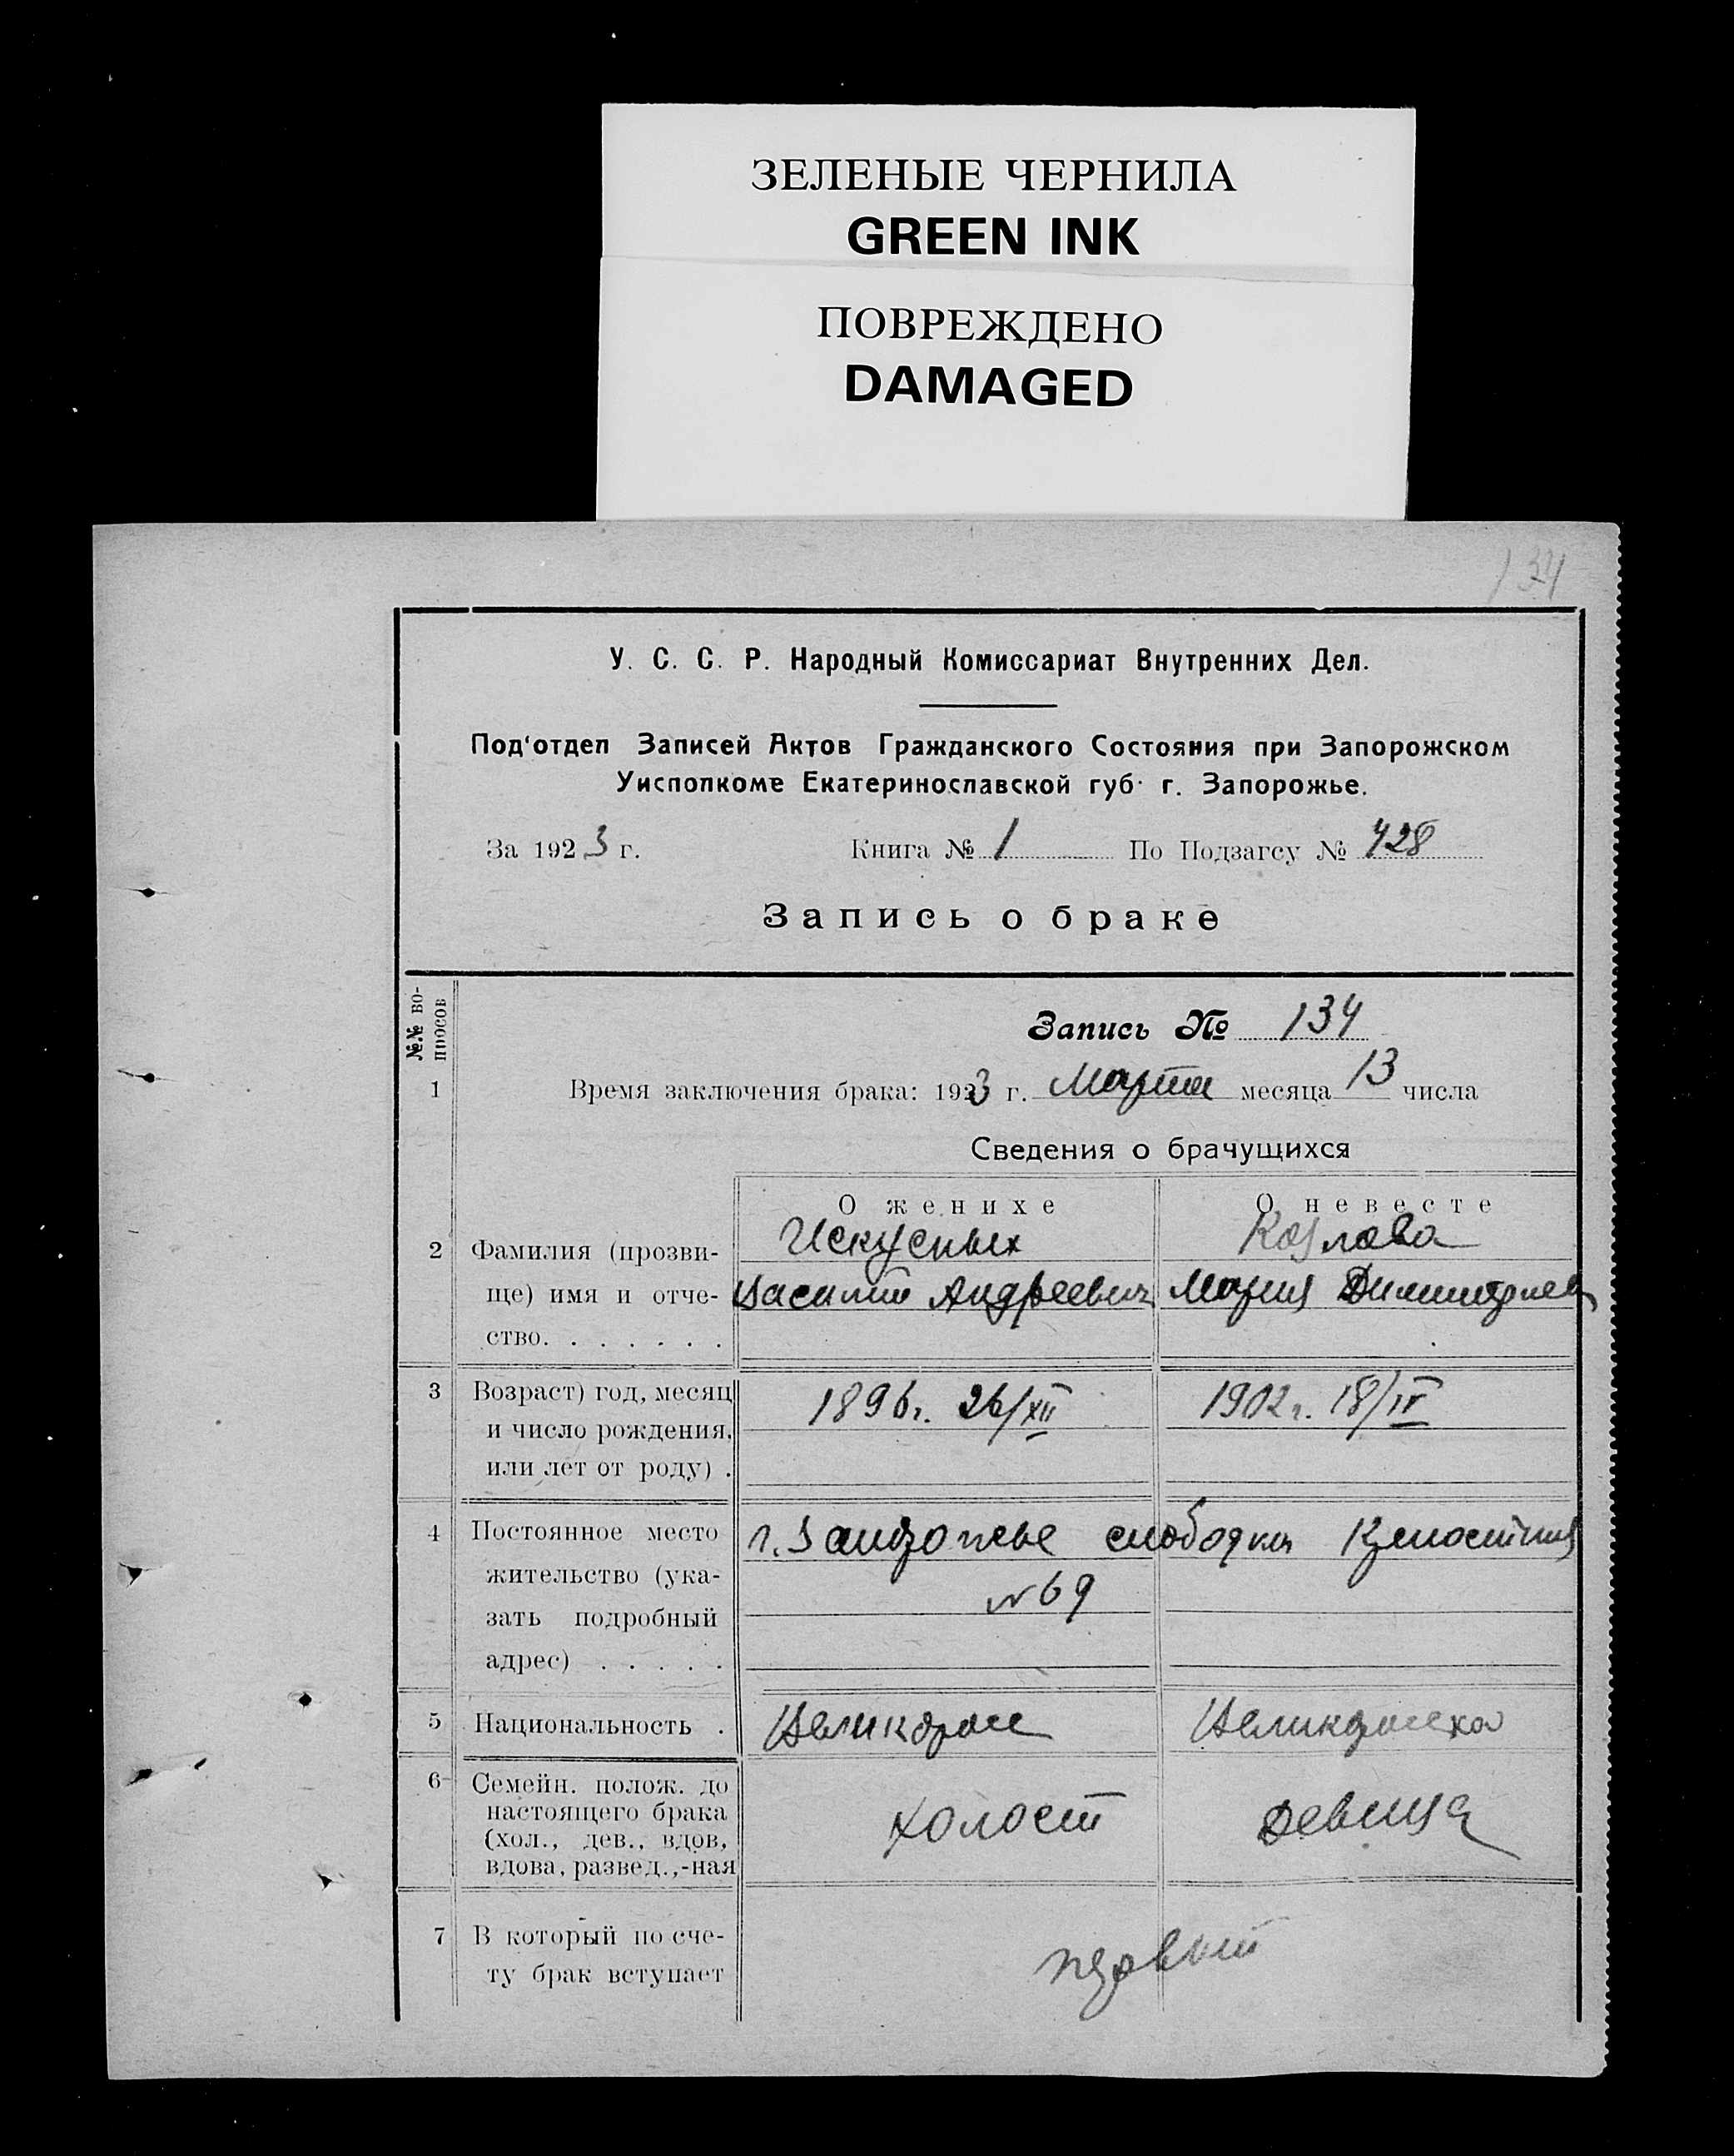 ЗЕЛЕНЫЕ ЧЕРНИЛА
GREEN INK
ПОВРЕЖДЕНО
DAMAGED
134
У. С. С. Р. Народный Комиссариат Внутренних Дел.
Под‘отдел Записей Актов Гражданского Состояния при Запорожском
Уисполкоме Екатеринославской губ. г. Запорожье.
За 1923 г. Книга № 1 По Подзагсу № 428
Запись о браке
№№ во-
просов
Запись № 134
1 Время заключения брака: 1923 г. Марта месяца 13 числа
Сведения о брачущихся
О женихе О невесте
2 Фамилия (прозви- Искусных Козлова
ще) имя и отче- Василий Андреевич Мария Димитриев
ство. . . . . . .
3 Возраст) год, месяц 1896г. 26/XII 1902г. 18/IV
и число рождения,
или лет от роду) .
4 Постоянное место г. Запорожье слободка
жительство (ука- №69
зать подробный
адрес) . . . . .
5 Национальность . Великорос Великоросска
6 Семейн. полож. до
настоящего брака холост девица
(хол., дев., вдов,
вдова, развед.,-ная
7 В который по сче- первый
ту брак вступает